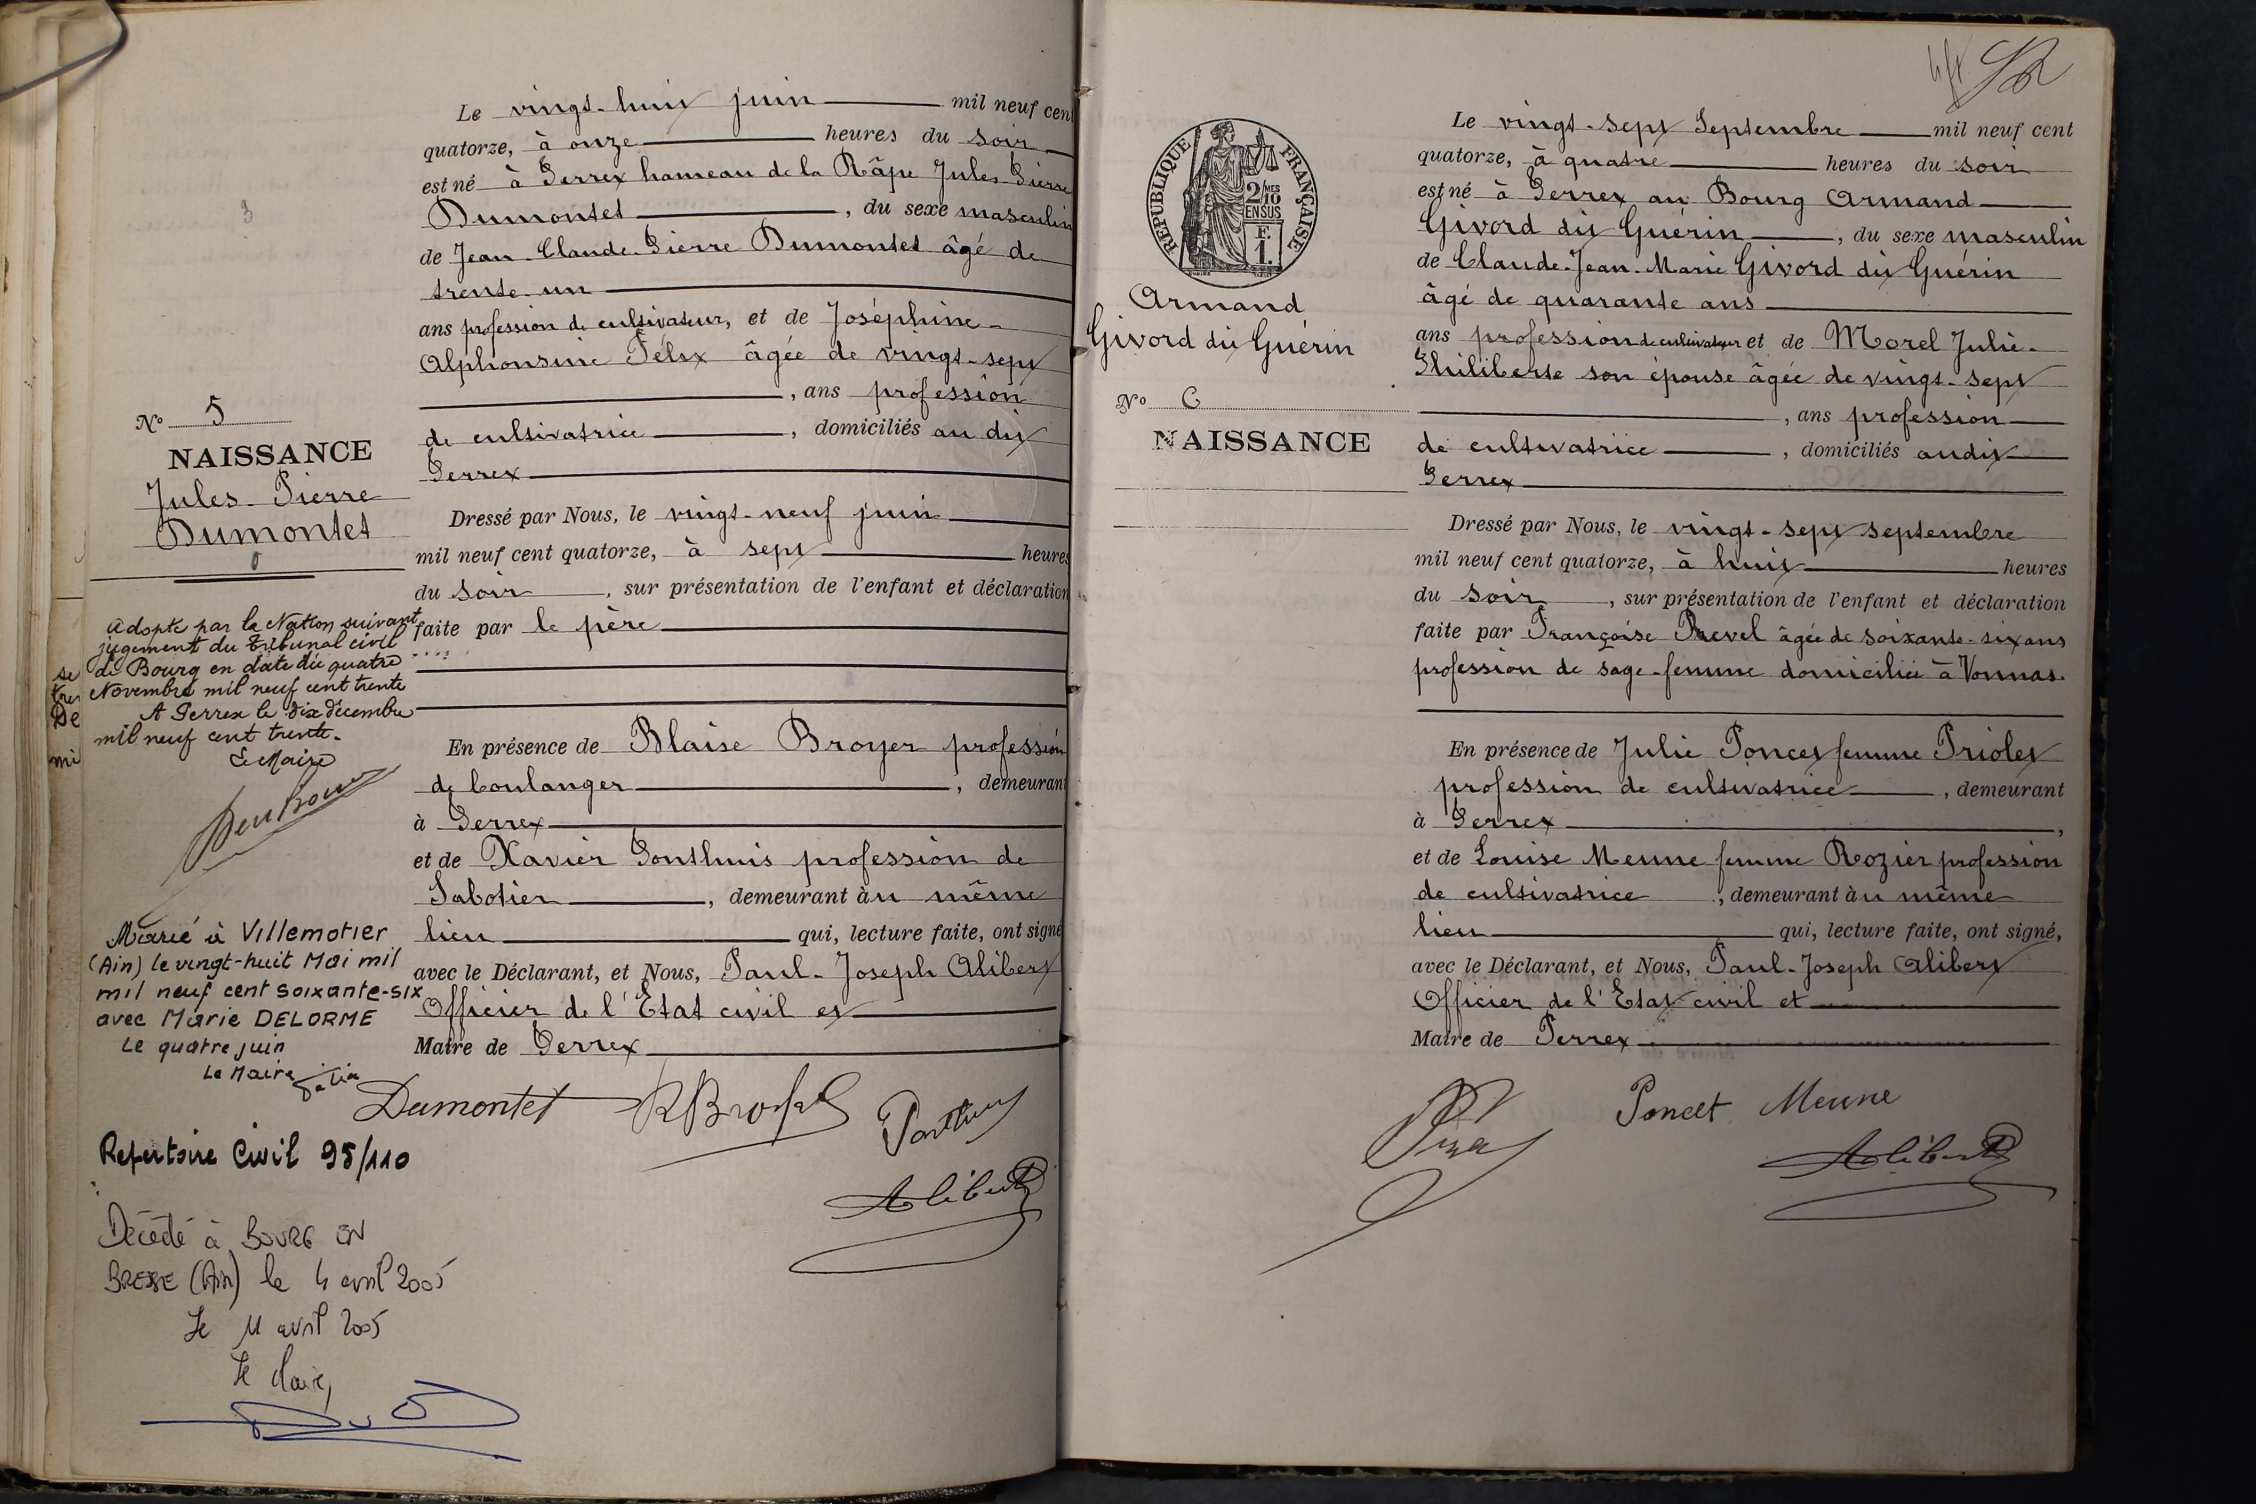 Le vingt-huit juin mil neuf cent
quatorze, à onze heures du soir
est né à Perrex hameau de la Râpe Jules-Pierre
Dumontet, du sexe masculin
de Jean-Claude-Pierre Dumontet âgé de
trente-un
ans profession de cultivateur, et de Joséphine-
Alphonsine Félix âgée de vingt-sept
, ans profession
de cultivatrice, domiciliés au dit
Perrex
Dressé par Nous, le vingt-neuf juin
mil neuf cent quatorze, à sept heures
du soir, sur présentation de l'enfant et déclaration
faite par le père
En présence de Blaise Broyer profession
de boulanger, demeurant
à Perrex
et de Xavier Ponthuis profession de
Sabotier, demeurant àu même
lieu qui, lecture faite, ont signé
avec le Déclarant, et Nous, Paul-Joseph Alibert
Officier de l'Etat civil et
Maire de Perrex
Dumontet
Alibert
3
No 5
NAISSANCE
Jules-Pierre
Dumontet
Adopté par la Nation suivant
jugement du Tribunal civil
de Bourg en date du quatre
Novembre mil neuf cent trente
A Perrex le dix décembre
mil neuf cent trente.
Le Maire
Marié à Villemotier
(Ain) le vingt-huit Mai mil
mil neuf cent soixante-six
avec Marie DELORME
Le quatre juin
Le Maire
Repertoire Civil 95/110
Décédé à BOURG EN
BRESSE (Ain) le 4 avril 2005
Le 11 avril 2005
Le Maire,
se
mi
RÉPUBLIQUE FRANÇAISE
2/10
MES
EN SUS
F.
1.
Armand
Givord dit Guérin
No 6
NAISSANCE
Le vingt-sept Septembre mil neuf cent
quatorze, à quatre heures du soir
est né à Perrex au Bourg Armand
Givord dit Guérin, du sexe masculin
de Claude-Jean-Marie Givord dit Guérin
âgé de quarante ans
ans profession de cultivateur et de Morel Julie-
Philiberte son épouse âgée de vingt-sept
, ans profession
de cultivatrice, domiciliés audit
Perrex
Dressé par Nous, le vingt-sept septembre
mil neuf cent quatorze, à huit heures
du soir, sur présentation de l'enfant et déclaration
faite par Françoise Prevel âgée de soixante-six ans
profession de sage-femme domiciliée à Vonnas.
En présence de Julie Poncet femme Priolet
profession de cultivatrice, demeurant
à Perrex,
et de Louise Meune femme Rozier profession
de cultivatrice, demeurant àu même
lieu qui, lecture faite, ont signé,
avec le Déclarant, et Nous, Paul-Joseph Alibert
Officier de l'Etat civil et
Maire de Perrex
Poncet Meune
Alibert